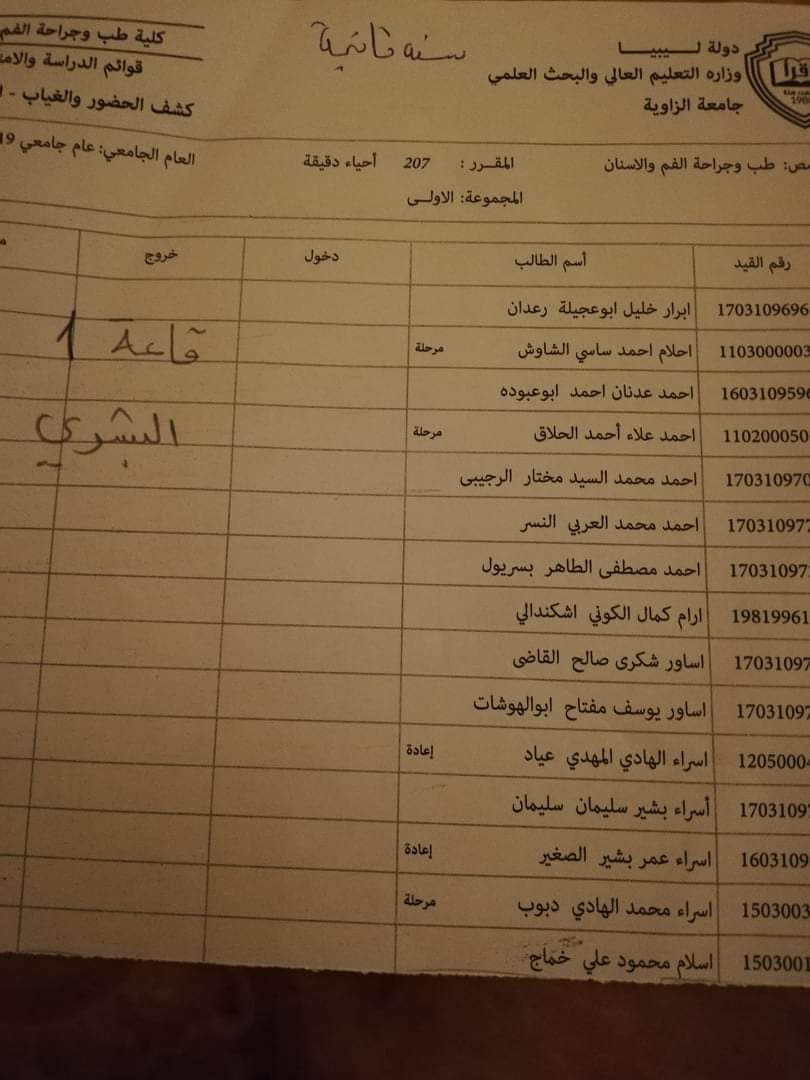 سنه ثانية
دولة لـــيبيـــــا
وزاره التعليم العالي والبحث العلمي
جامعة الزاوية
اقرأ
كلية طب وجراحة الفم
قوائم الدراسة والامت
كشف الحضور والغياب -
العام الجامعي: عام جامعي 19
صص: طب وجراحة الفم والاسنان
المقـــرر : 207 أحياء دقيقة
المجموعة: الاولـــى
رقم القيد أسم الطالب دخول خروج
1703109696 ابرار خليل ابوعجيلة رعدان
1103000003 احلام احمد ساسي الشاوش مرحلة
قاعة 1
1603109596 احمد عدنان احمد ابوعبوده
110200050 احمد علاء أحمد الحلاق مرحلة
البشري
170310970 احمد محمد السيد مختار الرجيبى
170310977 احمد محمد العربي النسر
17031097 احمد مصطفى الطاهر بسريول
19819961 ارام كمال الكوني اشكندالي
17031097 اساور شكرى صالح القاضى
17031097 اساور يوسف مفتاح ابوالهوشات
1205000 اسراء الهادي المهدي عياد إعادة
1703109 أسراء بشير سليمان سليمان
1603109 اسراء عمر بشير الصغير إعادة
1503003 اسراء محمد الهادي دبوب مرحلة
1503001 اسلام محمود علي خماج